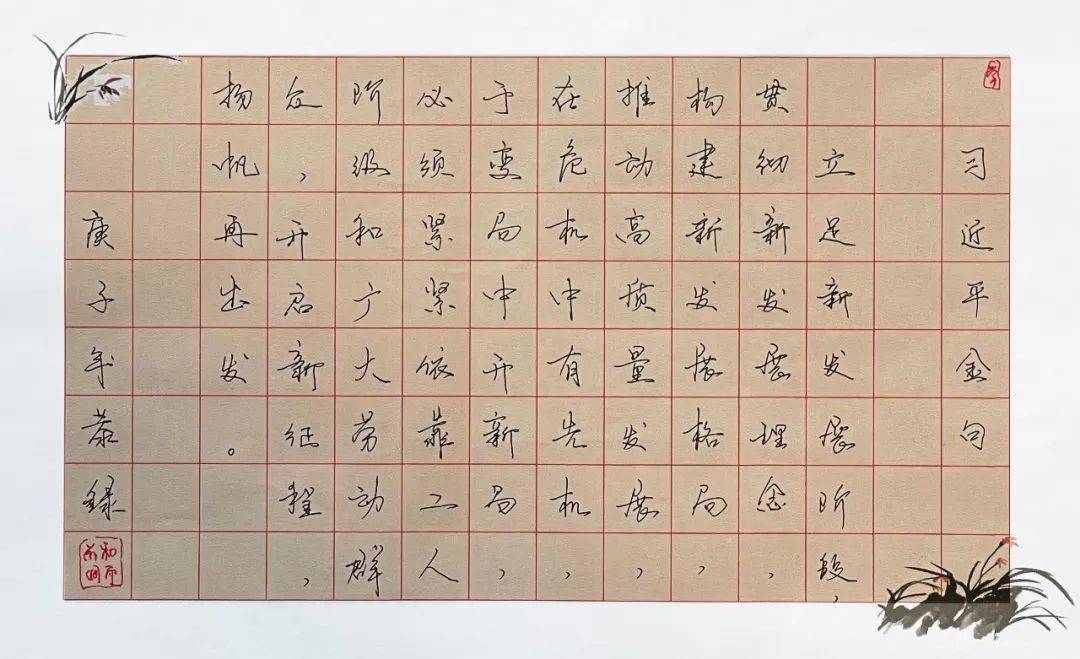 习近平金句
立足新发展阶段，
贯彻新发展理念，
构建新发展格局，
推动高质量发展，
在危机中有先机，
于变局中开新局，
必须紧紧依靠工人
阶级和广大劳动群
众，开启新征程，
扬帆再出发。
庚子年恭録